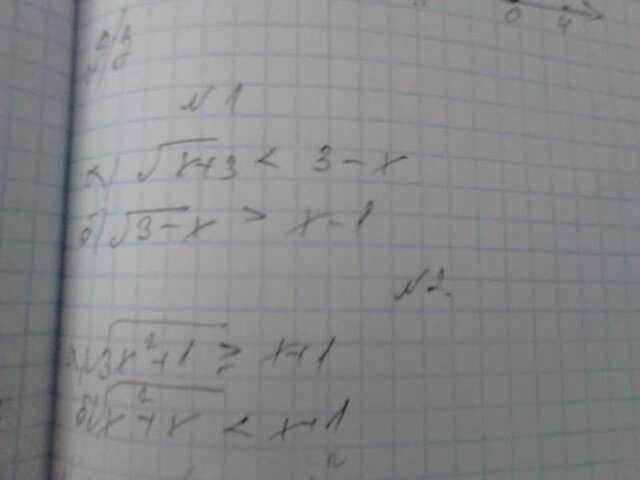 0 4
№1
а) √x+3 < 3-x
б) √3-x > x-1
№2.
а) √3x²+1 ≥ x+1
б) √x²+x < x+1